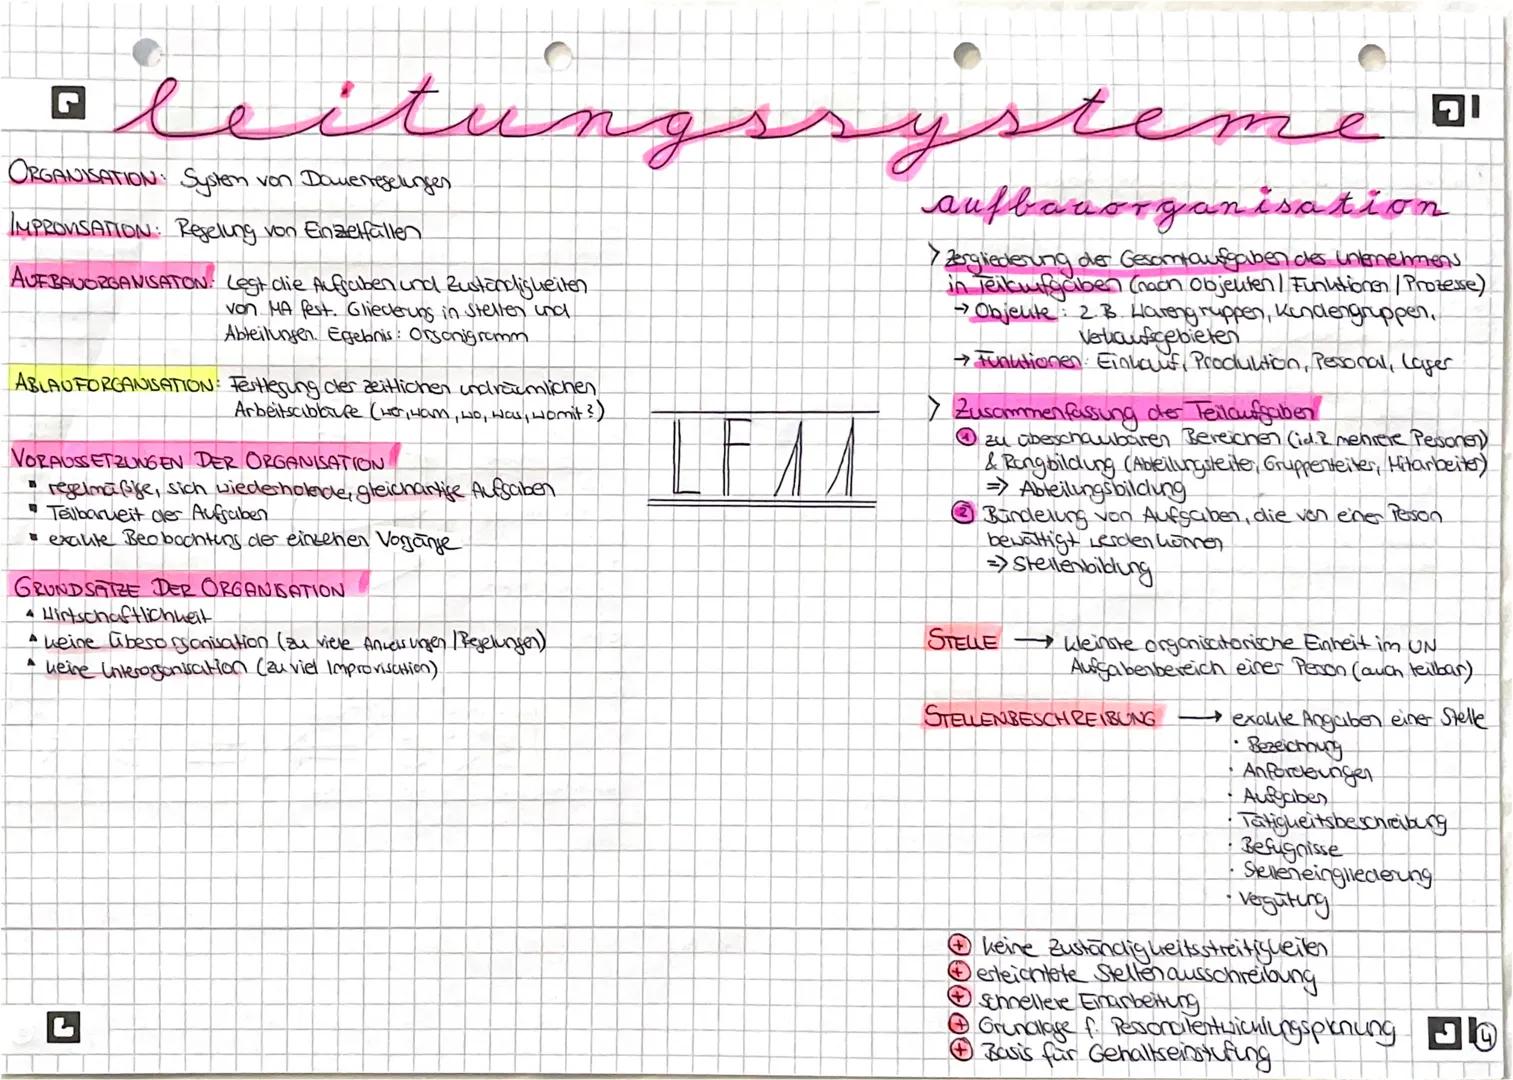 leitungssysteme
ORGANISATION: System von Dauerregelungen
IMPROVISATION: Regelung von Einzelfällen
AUFBAUORGANISATON: Legt die Aufgaben und Zuständigkeiten
von MA fest. Gliederung in Stellen und
Abteilungen. Ergebnis: Organigramm
ABLAUFORGANISATION: Festlegung der zeitlichen und räumlichen
Arbeitsabläufe (wer, wann, wo, was, womit?)
VORAUSSETZUNGEN DER ORGANISATION
▪ regelmäßige, sich wiederholende, gleichartige Aufgaben
▪ Teilbarkeit der Aufgaben
▪ exakte Beobachtung der einzelnen Vorgänge
GRUNDSÄTZE DER ORGANISATION
▴ Wirtschaftlichkeit
▴ keine Überorganisation (zu viele Anweisungen / Regelungen)
▴ keine Unterorganisation (zu viel Improvisation)
LF 11
aufbauorganisation
> Zergliederung der Gesamtaufgaben des Unternehmens
in Teilaufgaben (nach Objekten / Funktionen / Prozesse)
→ Objekte: z.B. Warengruppen, Kundengruppen,
Verkaufsgebieten
→ Funktionen: Einkauf, Produktion, Personal, Lager
> Zusammenfassung der Teilaufgaben
① zu überschaubaren Bereichen (i.d.R mehrere Personen)
& Rangbildung (Abteilungsleiter, Gruppenleiter, Mitarbeiter)
=> Abteilungsbildung
② Bündelung von Aufgaben, die von einer Person
bewältigt werden können
=> Stellenbildung
STELLE → kleinste organisatorische Einheit im UN
Aufgabenbereich einer Person (auch teilbar)
STELLENBESCHREIBUNG → exakte Angaben einer Stelle
· Bezeichnung
· Anforderungen
· Aufgaben
· Tätigkeitsbeschreibung
· Befugnisse
· Stelleneingliederung
· Vergütung
⊕ keine Zuständigkeitsstreitigkeiten
⊕ erleichtete Stellenausschreibung
⊕ schnellere Einarbeitung
⊕ Grundlage f. Personalentwicklungsplanung
⊕ Basis für Gehaltseinstufung
4